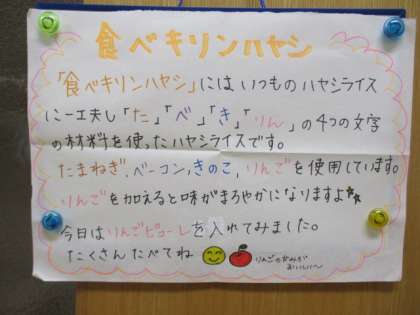 食べキリンハヤシ
「食べキリンハヤシ」にはいつものハヤシライス
に一工夫し「た」「べ」「き」「りん」の4つの文字
の材料を使ったハヤシライスです。
たまねぎ、ベーコン、きのこ、りんごを使用しています。
りんごを加えると味がまろやかになりますよ☆
今日はりんごピューレを入れてみました。
たくさんたべてね
りんごのあまみが
おいしい～